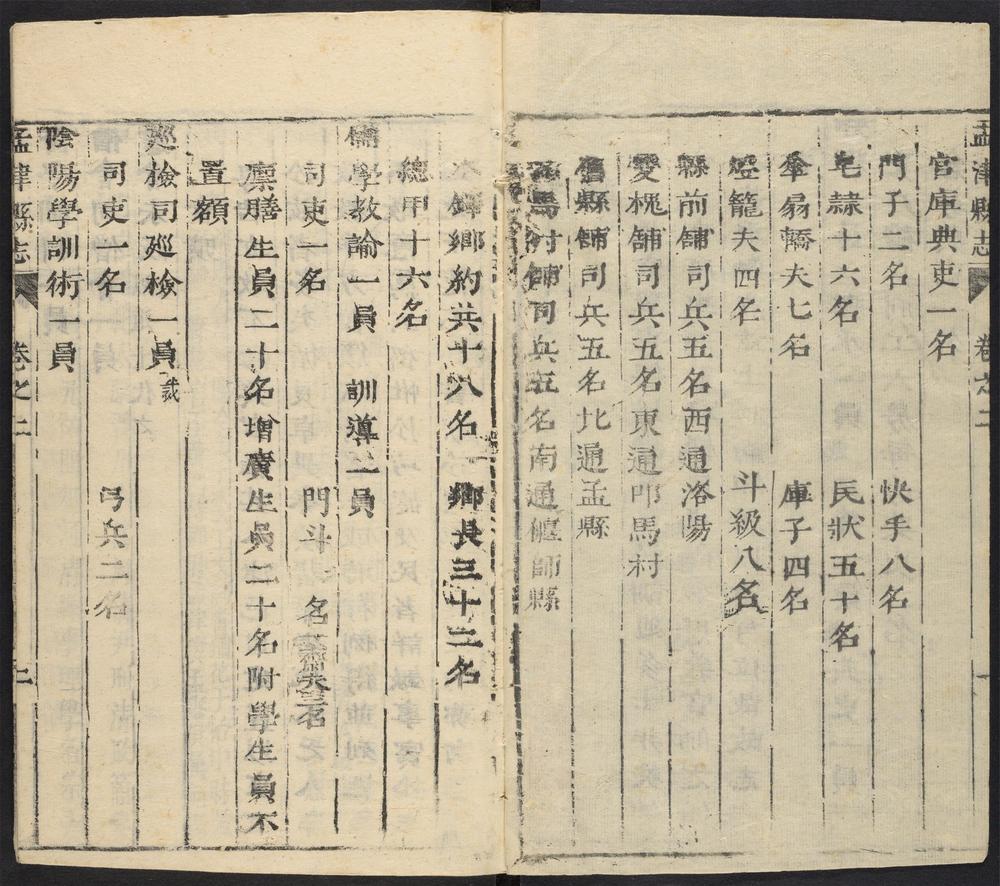 孟津縣志 卷之二
官庫典吏一名
門子二名 快手八名
皂隷十六名 民狀五十名
傘扇轎夫七名 庫子四名
燈籠夫四名 斗級八名
縣前舖司兵五名西通洛陽
雙槐舖司兵五名東通叩馬村
舊縣舖司兵五名北通孟縣
馬村舖司兵五名南通偃師縣
木鐸鄉約共十八名 鄉長三十二名
總甲十六名
儒學教諭一員 訓導一員
司吏一名 門斗 名
廪膳生員二十名增廣生員二十名附學生員不
置額
廵檢司廵檢一員裁
司吏一名 弓兵二名
陰陽學訓術一員
孟津縣志 卷之二